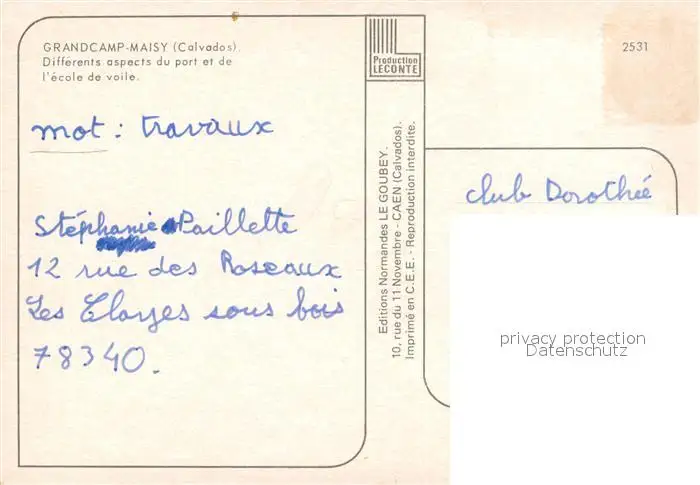 GRANDCAMP-MAISY (Calvados).
Différents aspects du port et de
l'école de voile.
mot : travaux
Stéphanie Paillette
12 rue des Roseaux
Les Clayes sous bois
78340.
Production
LECONTE
Editions Normandes LE GOUBEY.
10, rue du 11 Novembre - CAEN (Calvados).
Imprimé en C.E.E. - Reproduction interdite.
2531
club Dorothée
privacy protection
Datenschutz